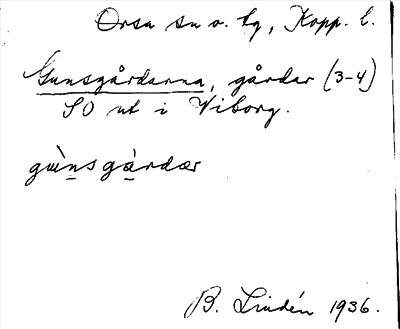 Orsa sn o. tg, Kopp. l.
Gunsgårdarna, gårdar (3-4)
SO ut i Viborg.
gùnsgàrdær
B. Lindén 1936.